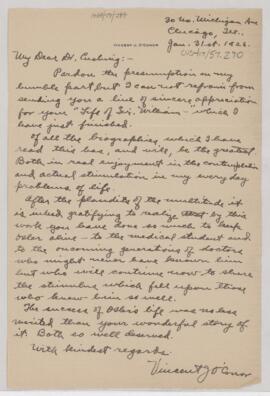 VINCENT J. O'CONOR
30 No. Michigan Ave
Chicago, Ill.
Jan. 31st. 1926.
My Dear Dr. Cushing:-
Pardon the presumption on my
humble part, but I can not refrain from
sending you a line of sincere appreciation
for your "Life of Sir William" - which I
have just finished.
Of all the biographies which I have
read this has, and will, be the greatest
Both in real enjoyment in the contemplation
and actual stimulation in my every day
problems of life.
After the plaudits of the multitude it
is indeed, gratifying to realize that by this
work you have done so much to keep
Osler alive - to the medical student and
to the oncoming generations of doctors
who might never have known him
but who will continue now to share
the stimulus which fell upon those
who knew him so well.
The success of Osler's life was no less
merited than your wonderful story of
it. Both so well deserved.
With kindest regards.
Vincent J O'Conor